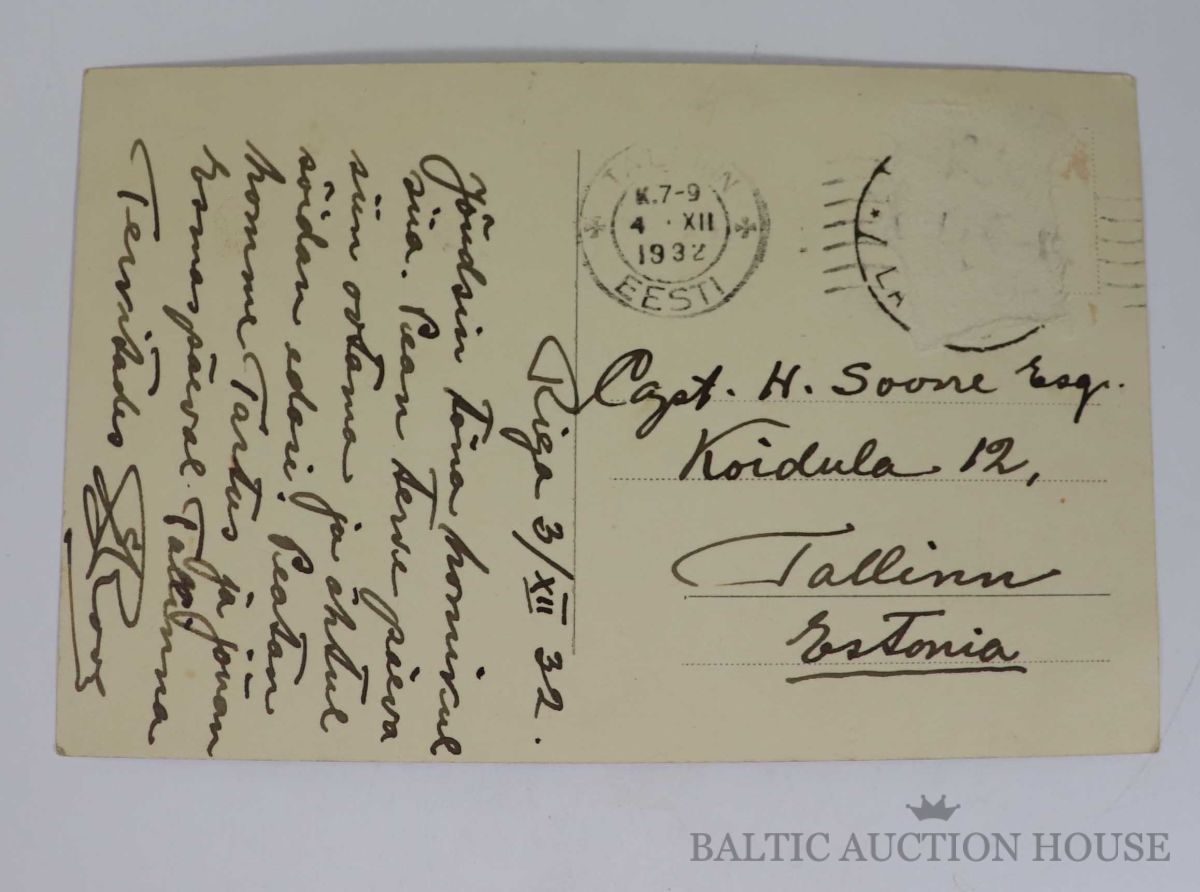 Riga 3/XII 32.
Jõudsin täna hommikul
siia. Pean terve päeva
siin ootama ja õhtul
sõidan edasi. Peatan
homme Tartus ja jõuan
Esmaspäeval Tallinna
Tervitades
TALLINN
K.7-9
4 · XII
1932
EESTI
Capt. H. Soone Esq.
Koidula 12,
Tallinn
Estonia
BALTIC AUCTION HOUSE